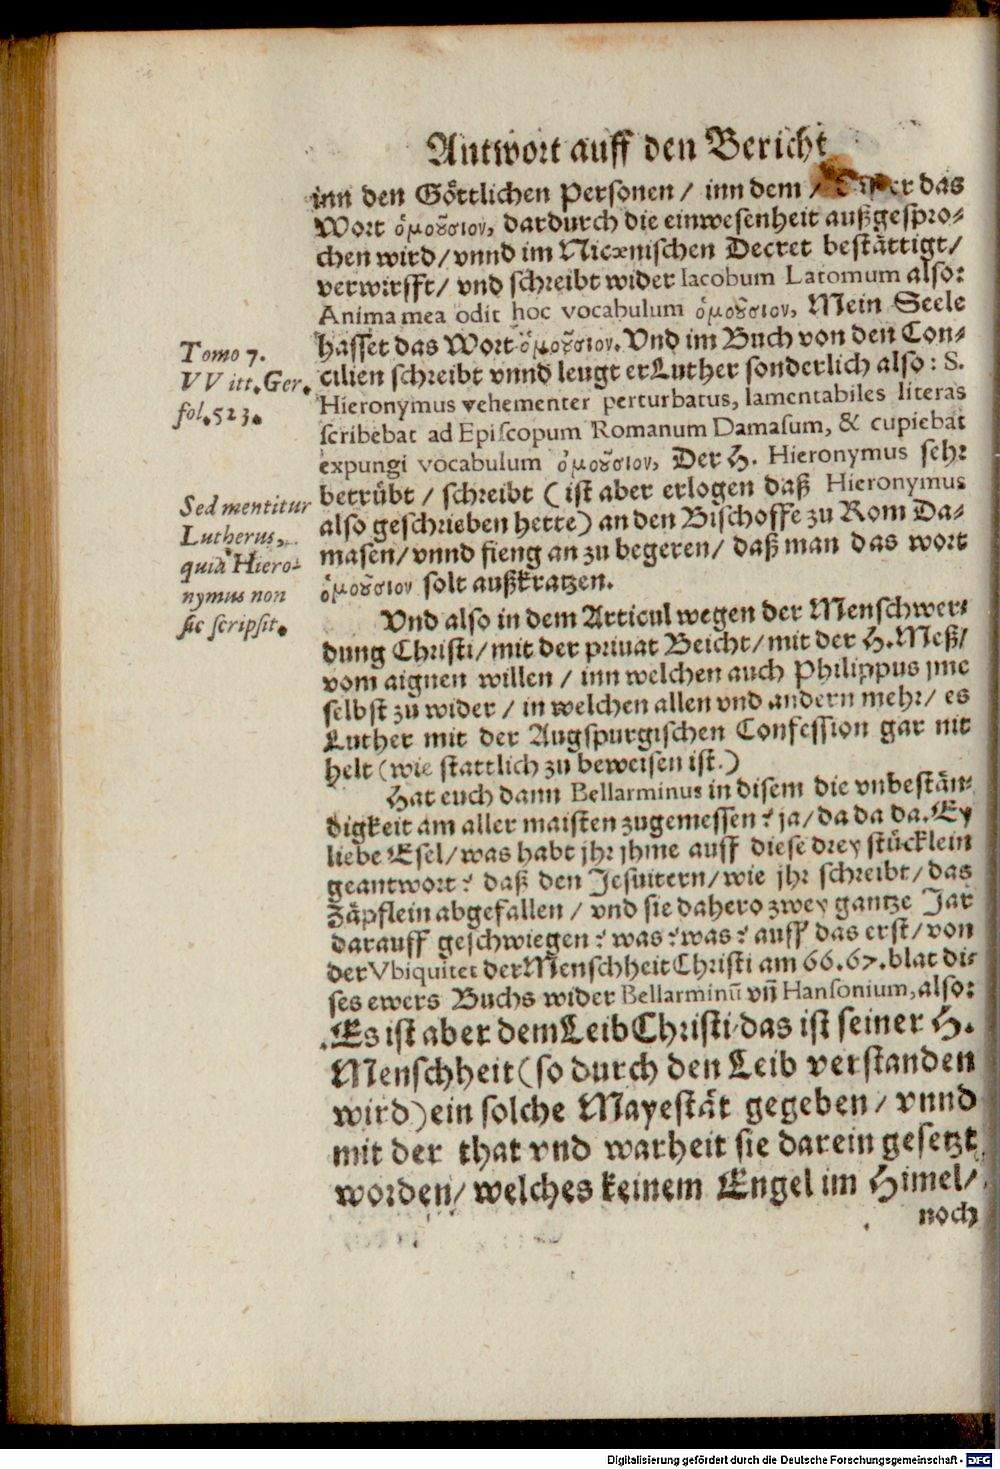 Antwort auff den Bericht
inn den Göttlichen Personen/ inn dem / das
Wort ὁμοȣ́σιον, dardurch die einwesenheit außgespro-
chen wird/ vnnd im Nicænischen Decret bestättigt/
verwirfft/ vnd schreibt wider Iacobum Latomum also:
Anima mea odit hoc vocabulum ὁμοȣ́σιον, Mein Seele
hasset das Wort ὁμοȣ́σιον. Vnd im Buch von den Con-
Tomo 7.
VVitt. Ger.
fol. 523.
cilien schreibt vnnd leugt er Luther sonderlich also: S.
Hieronymus vehementer perturbatus, lamentabiles literas
scribebat ad Episcopum Romanum Damasum, & cupiebat
expungi vocabulum ὁμοȣ́σιον, Der H. Hieronymus sehr
Sed mentitur
Lutherus,
quia Hiero-
nymus non
sic scripsit.
betrübt / schreibt ( ist aber erlogen daß Hieronymus
also geschrieben hette) an den Bischoffe zu Rom Da-
masen/ vnnd fieng an zu begeren/ daß man das wort
ὁμοȣ́σιον solt außkratzen.
Vnd also in dem Articul wegen der Menschwer-
dung Christi/ mit der priuat Beicht/ mit der H. Meß/
vom aignen willen / inn welchen auch Philippus jme
selbst zu wider / in welchen allen vnd andern mehr/ es
Luther mit der Augspurgischen Confession gar nit
helt (wie stattlich zu beweisen ist.)
Hat euch dann Bellarminus in disem die vnbestän-
digkeit am aller maisten zugemessen? ja/ da da da. Ey
liebe Esel/ was habt jhr jhme auff diese drey stücklein
geantwort? daß den Jesuitern/ wie jhr schreibt/ das
Zäpflein abgefallen / vnd sie dahero zwey gantze Jar
darauff geschwiegen? was? was? auff das erst/ von
der Vbiquitet der Menschheit Christi am 66. 67. blat di-
ses ewers Buchs wider Bellarminū vñ Hansonium, also:
Es ist aber dem Leib Christi das ist seiner H.
Menschheit (so durch den Leib verstanden
wird) ein solche Mayestät gegeben / vnnd
mit der that vnd warheit sie darein gesetzt
worden/ welches keinem Engel im Himel/
noch
Digitalisierung gefördert durch die Deutsche Forschungsgemeinschaft - DFG